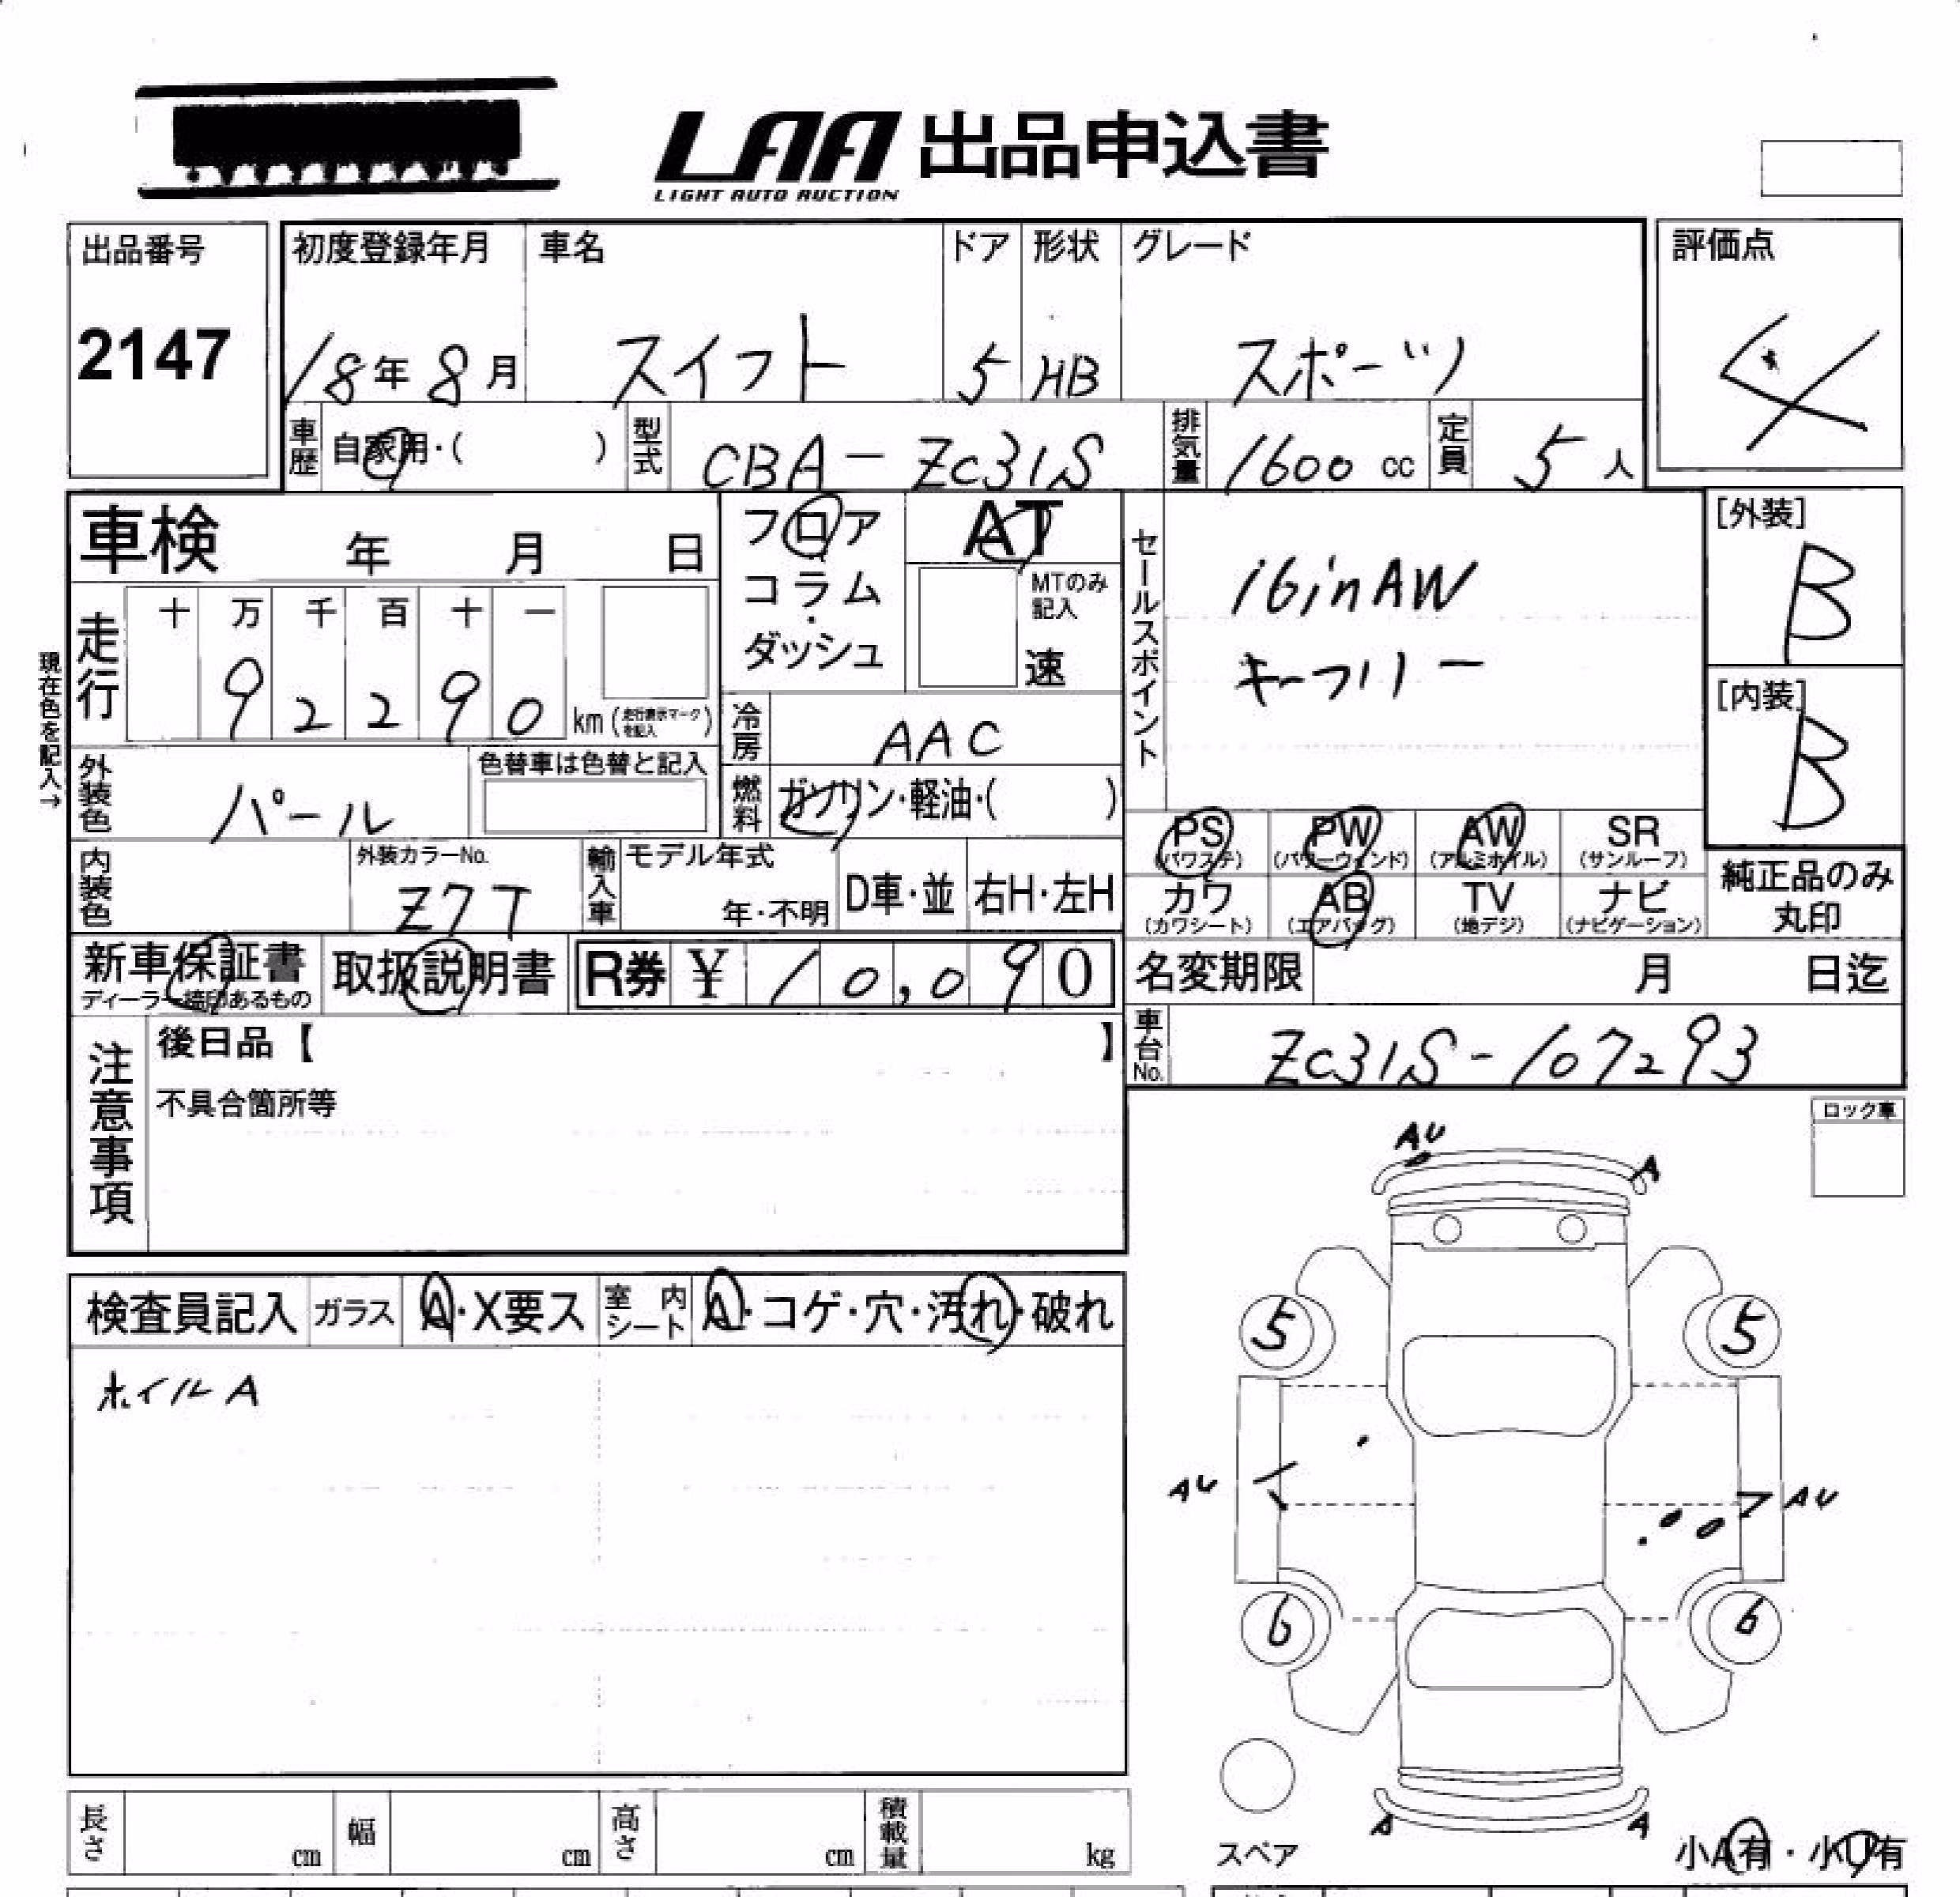 LAA 出品申込書
LIGHT AUTO AUCTION
出品番号
2147
初度登録年月
18年 8月
車名
スイフト
ドア
5
形状
HB
グレード
スポーツ
評価点
4
車歴
自家用・( )
型式
CBA-ZC31S
排気量
1600 cc
定員
5人
車検 年 月 日
フロア
コラム
・
ダッシュ
AT
MTのみ
記入
速
セールスポイント
16inAW
キーフリー
[外装]
B
[内装]
B
現在色を記入→
走行
十 万 千 百 十 一
9 2 2 9 0 km(走行表示マークを記入)
冷房
AAC
外装色
パール
色替車は色替と記入
燃料
ガソリン・軽油・( )
PS (パワステ)
PW (パワーウィンド)
AW (アルミホイル)
SR (サンルーフ)
カワ (カワシート)
AB (エアバッグ)
TV (地デジ)
ナビ (ナビゲーション)
純正品のみ
丸印
内装色
外装カラーNo.
Z7T
輸入車
モデル年式
年・不明
D車・並
右H・左H
新車保証書
ディーラー捺印あるもの
取扱説明書
R券 ¥ 10,090
名変期限 月 日迄
注意事項
後日品【 】
不具合箇所等
車台No.
ZC31S-107293
ロック車
AU
A
5 5
AU
AU
6 6
A
A
スペア
小A有・小U有
検査員記入
ガラス
A・X要ス
室内シート
A・コゲ・穴・汚れ・破れ
ホイルA
長さ cm
幅 cm
高さ cm
積載量 kg